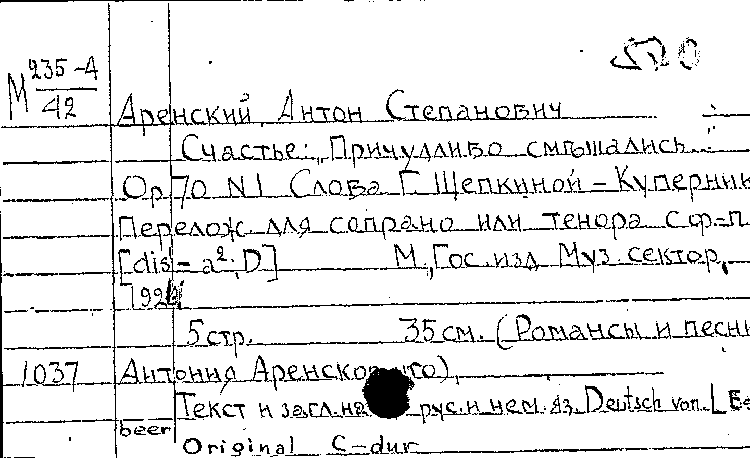 М 235-4
42
520
Аренский, Антон Степанович
Счастье: „Причудливо смѣшались..."
Ор. 70 N1 Слова Г. Щепкиной-Куперник
Перелож для сопрано или тенора с ф=п.
[dis' - a². D] М., Гос. изд. Муз. сектор,
192
5 стр. 35 см. (Романсы и песни
1037 Антония Аренского),
Текст и загл. на рус. и нем. яз. Deutsch von L
beer
Original C-dur